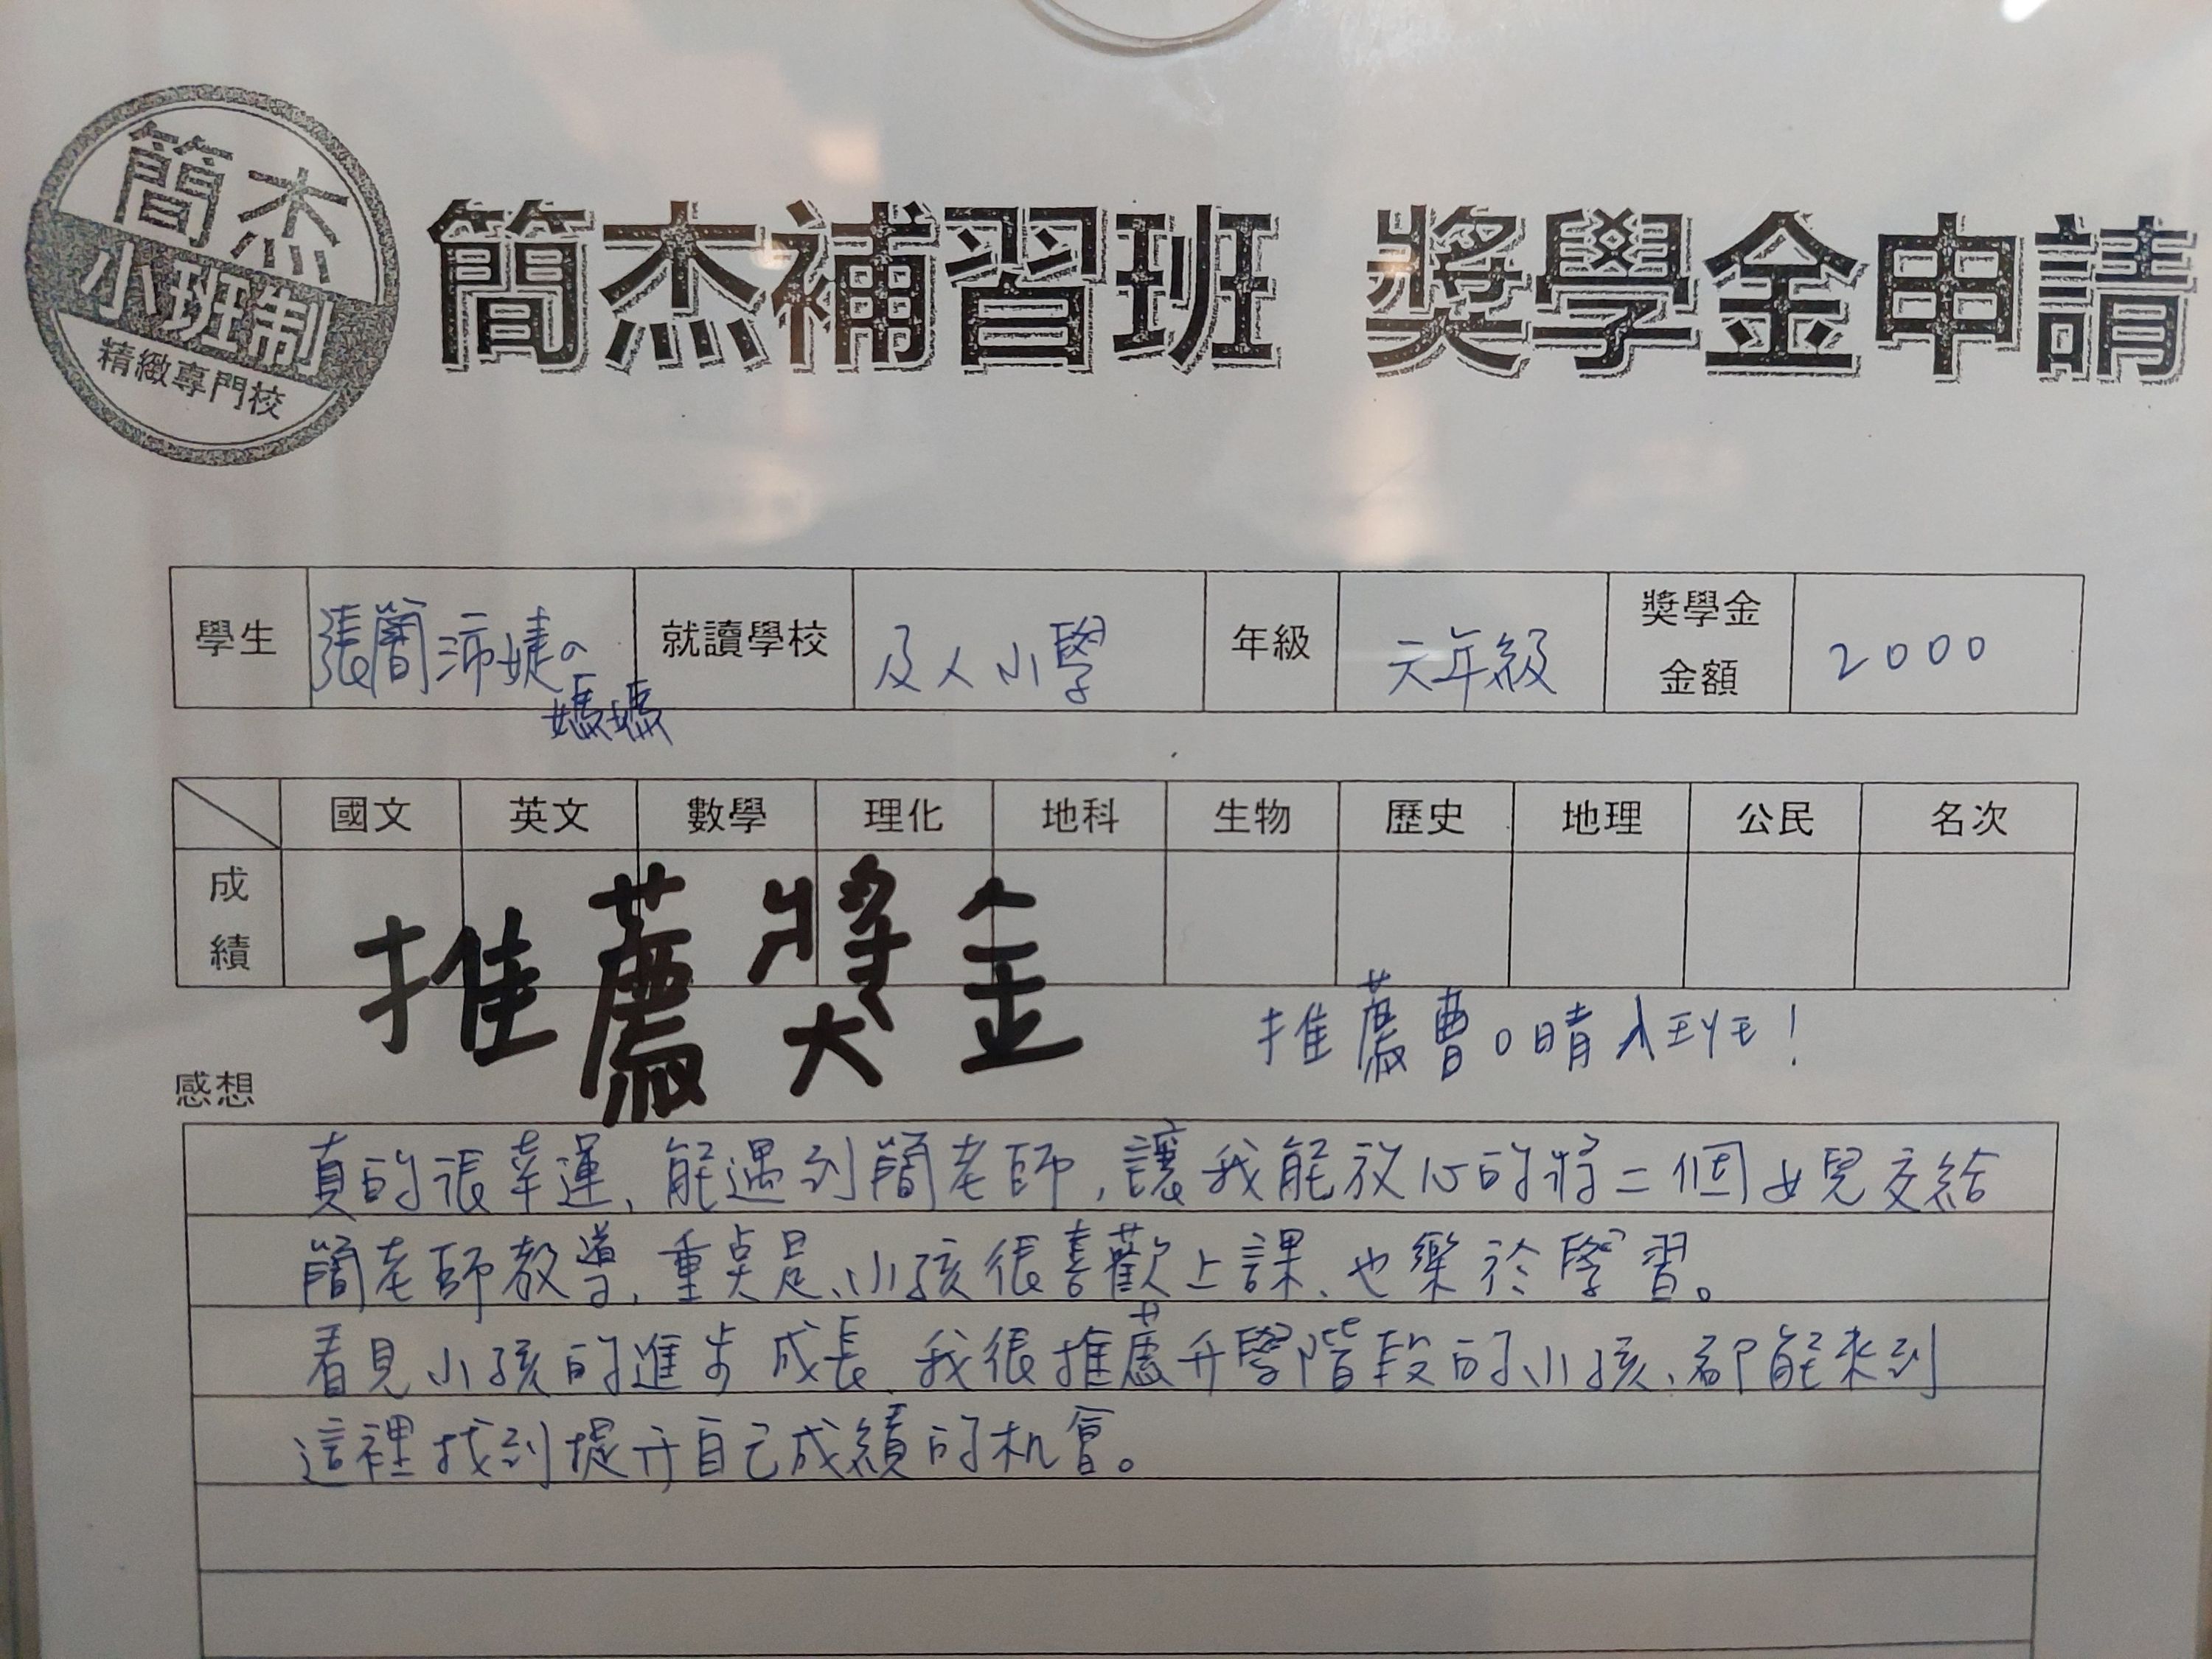 簡杰
小班制
精緻專門校
簡杰補習班 獎學金申請
學生 張簡沛婕の媽媽 就讀學校 及人小學 年級 六年級 獎學金金額 2000
國文 英文 數學 理化 地科 生物 歷史 地理 公民 名次
成績
推薦獎金
推薦曹○晴入班!
感想
真的很幸運、能遇到簡老師,讓我能放心的將二個女兒交給
簡老師教導,重點是、小孩很喜歡上課、也樂於學習。
看見小孩的進步成長、我很推薦升學階段的小孩、都能來到
這裡找到提升自己成績的机會。